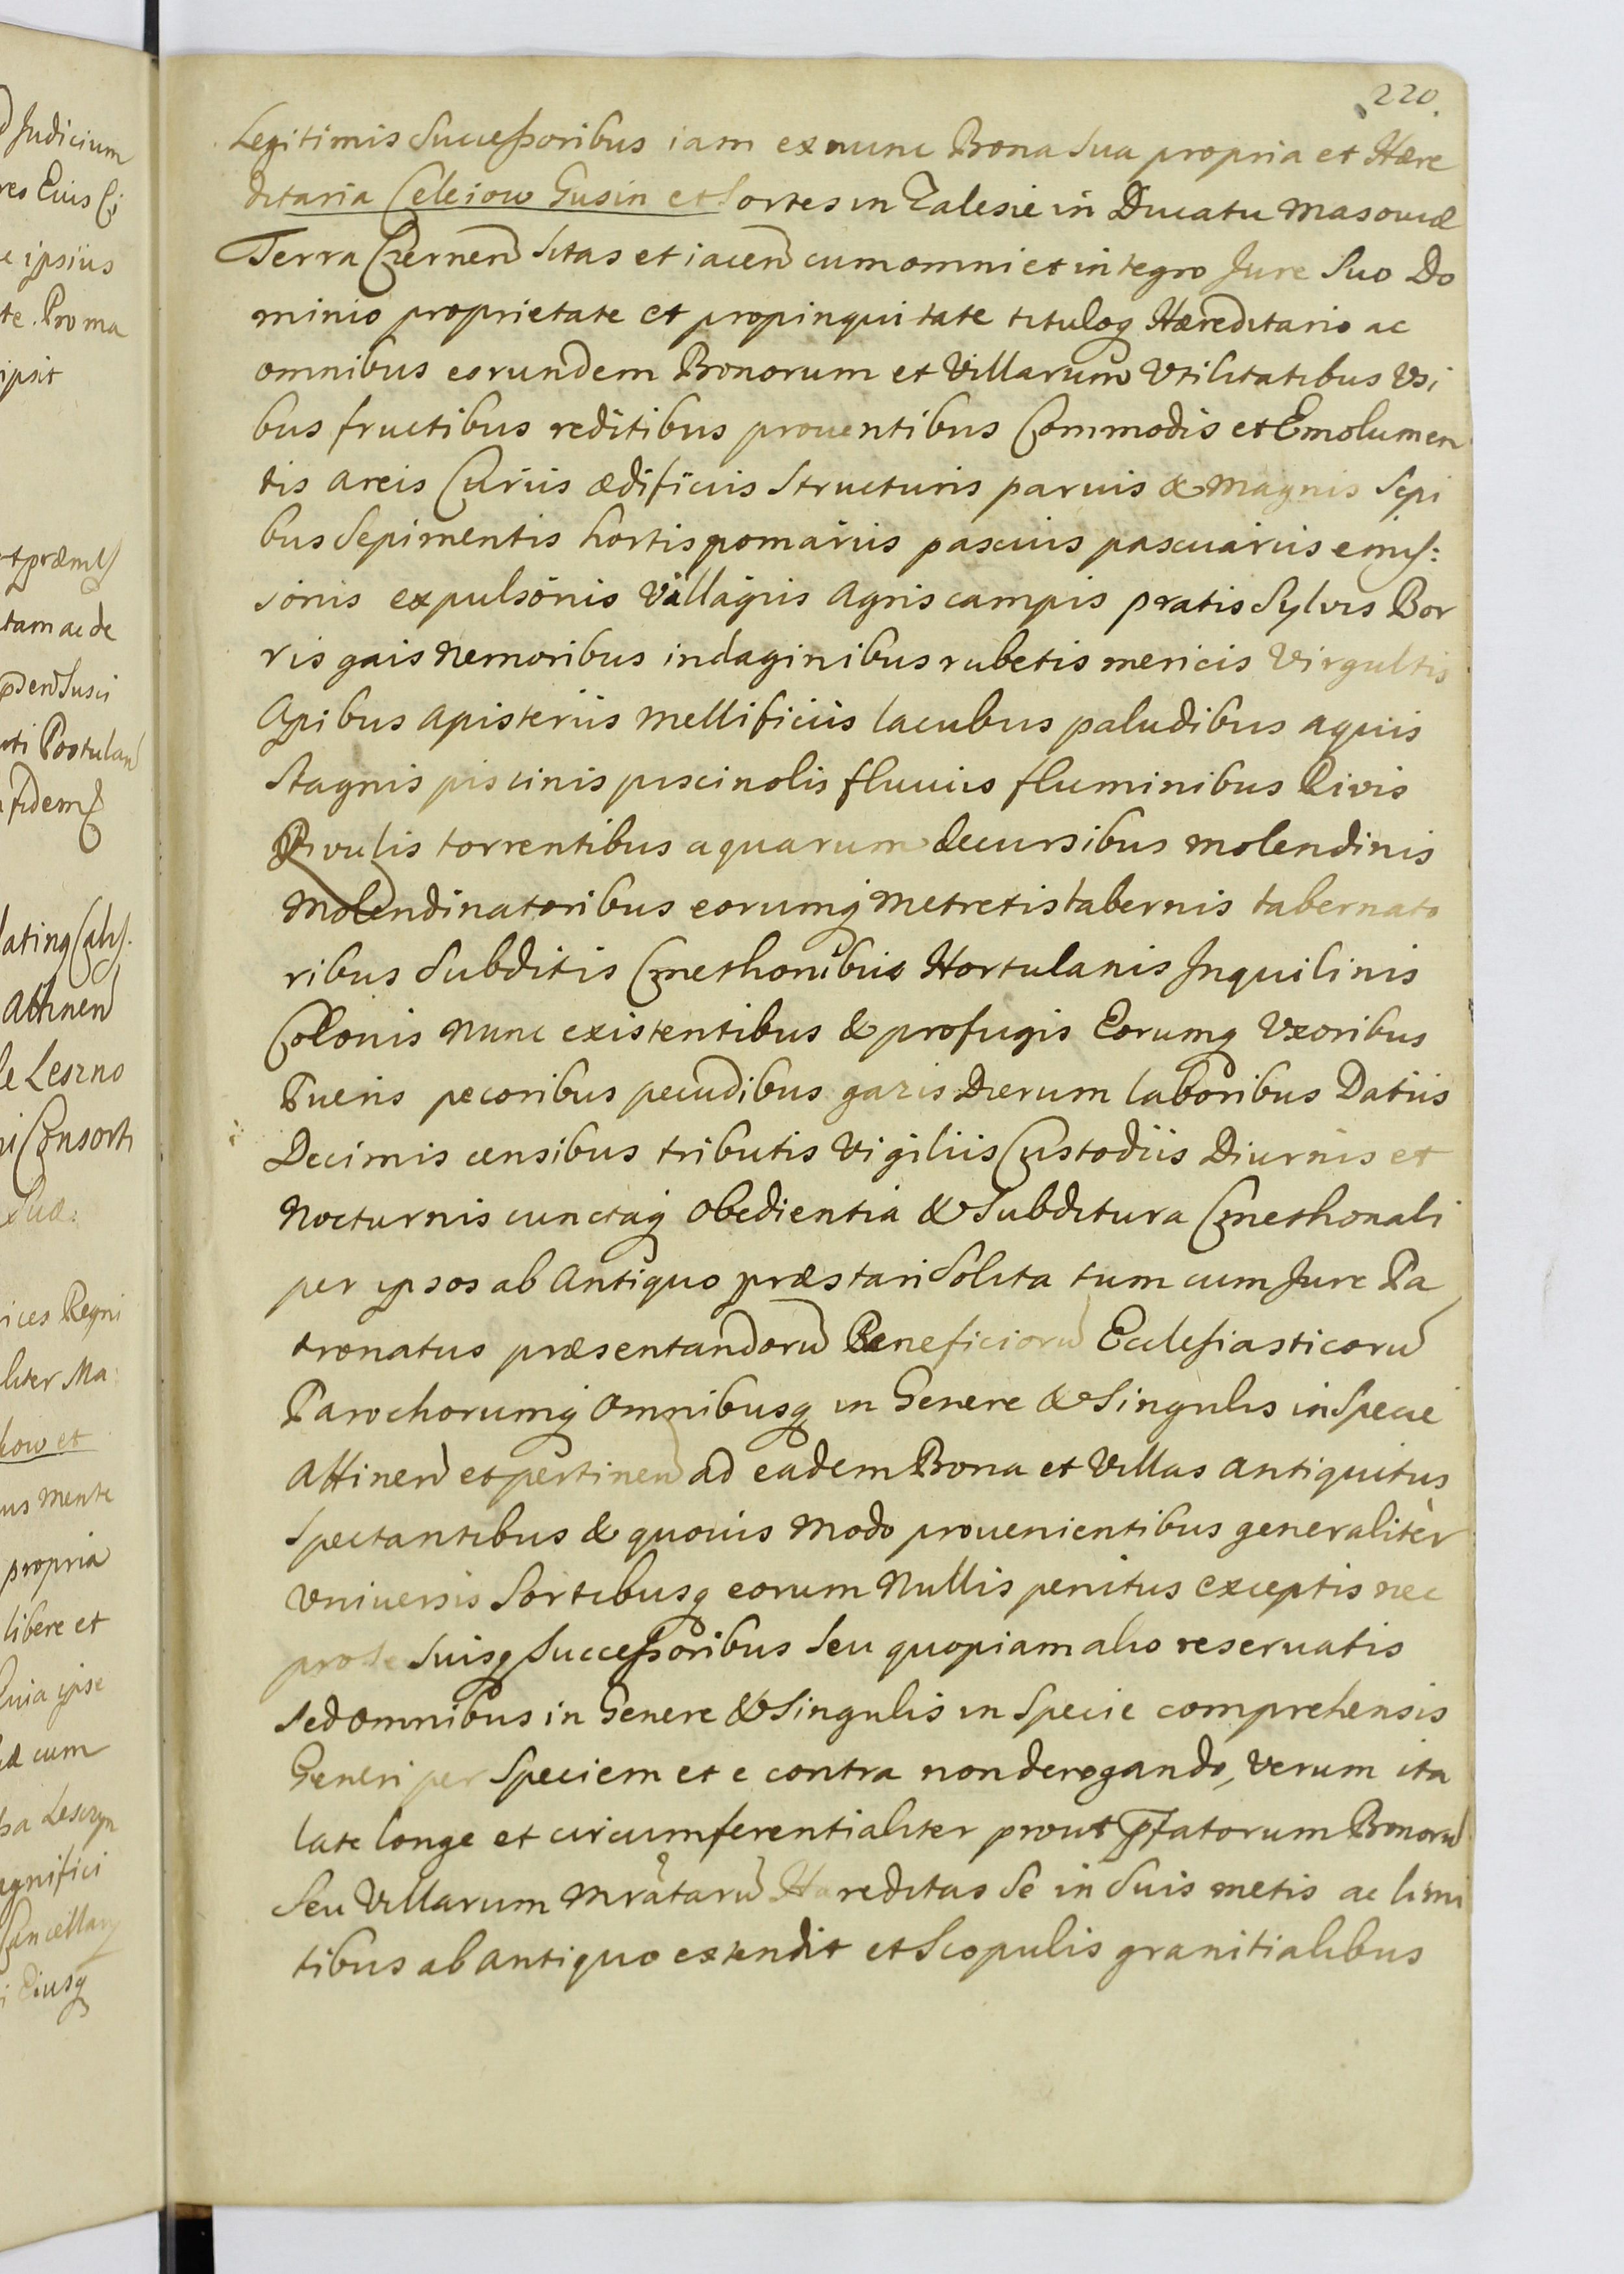 220.
Legitimis Successoribus iam ex nunc Bona sua propria et Hære
ditaria Celeiow Gusin et Sortes in Zalesie in Ducatu Masouiæ
Terra Czernen sitas et iacen cum omni et integro Jure suo Do
minio proprietate et propinquitate tituloq Hæreditario ac
omnibus eorundem Bonorum et Villarum Vtilitatibus Vsi
bus fructibus reditibus prouentibus Commodis et Emolumen
tis areis Curiis ædificiis structuris paruis & magnis Sepi
bus sepimentis hortis pomariis pascuis pascuariis emis:
sionis expulsionis Villagiis agris campis pratis Syluis Bor
ris gais nemoribus indaginibus rubetis mericis virgultis
Apibus apisteriis mellificiis lacubus paludibus aquis
stagnis piscinis piscinolis fluuiis fluminibus Riuis
Riuulis torrentibus aquarum decursibus molendinis
Molendinatoribus eorumq metretis tabernis tabernato
ribus Subditis Cmethonibus Hortulanis Inquilinis
Colonis nunc existentibus & profugis Eorumq Vxoribus
Pueris pecoribus pecudibus gazis Dierum laboribus Datiis
Decimis censibus tributis Vigiliis Custodiis Diurnis et
Nocturnis cunctaq obedientia & subditura Cmethonali
per ipsos ab antiquo præstari solita tum cum Jure Pa
tronatus præsentandorū Beneficiorū Ecclesiasticorū
Parochorumq omnibusq in Genere & singulis in Specie
attinen et pertinen ad eadem Bona et Villas antiquitus
spectantibus & quouis modo prouenientibus generaliter
vniuersis Sortibusq eorum nullis penitus exceptis nec
pro se suisq Successoribus seu quopiam alio reseruatis
sed omnibus in Genere & singulis in specie comprehensis
Generi per speciem et e contra non derogando, verum ita
late longe et circumferentialiter prout pfatorum Bonorū
seu Villarum mratarū Hæreditas se in suis metis ac limi
tibus ab antiquo extendit et Scopulis granitialibus